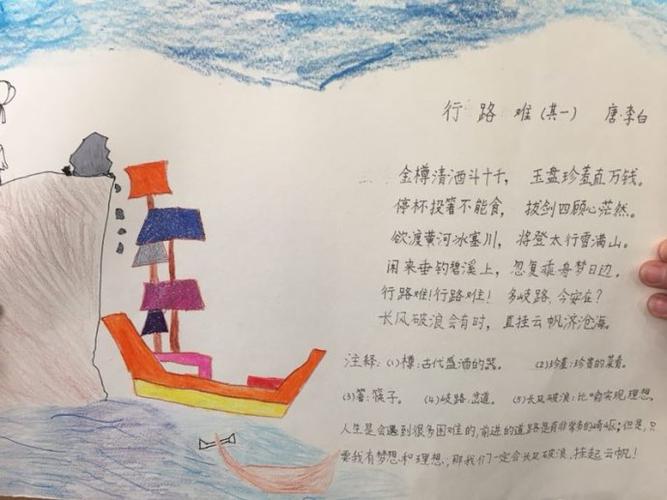 行路难(其一) 唐·李白
金樽清酒斗十千, 玉盘珍羞直万钱。
停杯投箸不能食, 拔剑四顾心茫然。
欲渡黄河冰塞川, 将登太行雪满山。
闲来垂钓碧溪上, 忽复乘舟梦日边。
行路难!行路难! 多岐路,今安在?
长风破浪会有时, 直挂云帆济沧海。
注释:(1)樽:古代盛酒的器。 (2)珍羞:珍贵的菜肴。
(3)箸:筷子。 (4)岐路:岔道。 (5)长风破浪:比喻实现理想。
人生是会遇到很多困难的,前进的道路是有非常多的崎岖;但是,只
要我有梦想和理想,那我们一定会长风破浪,挂起云帆!